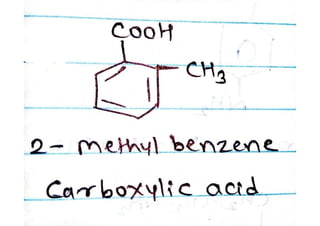 COOH
CH3
2- methyl benzene
Carboxylic acid